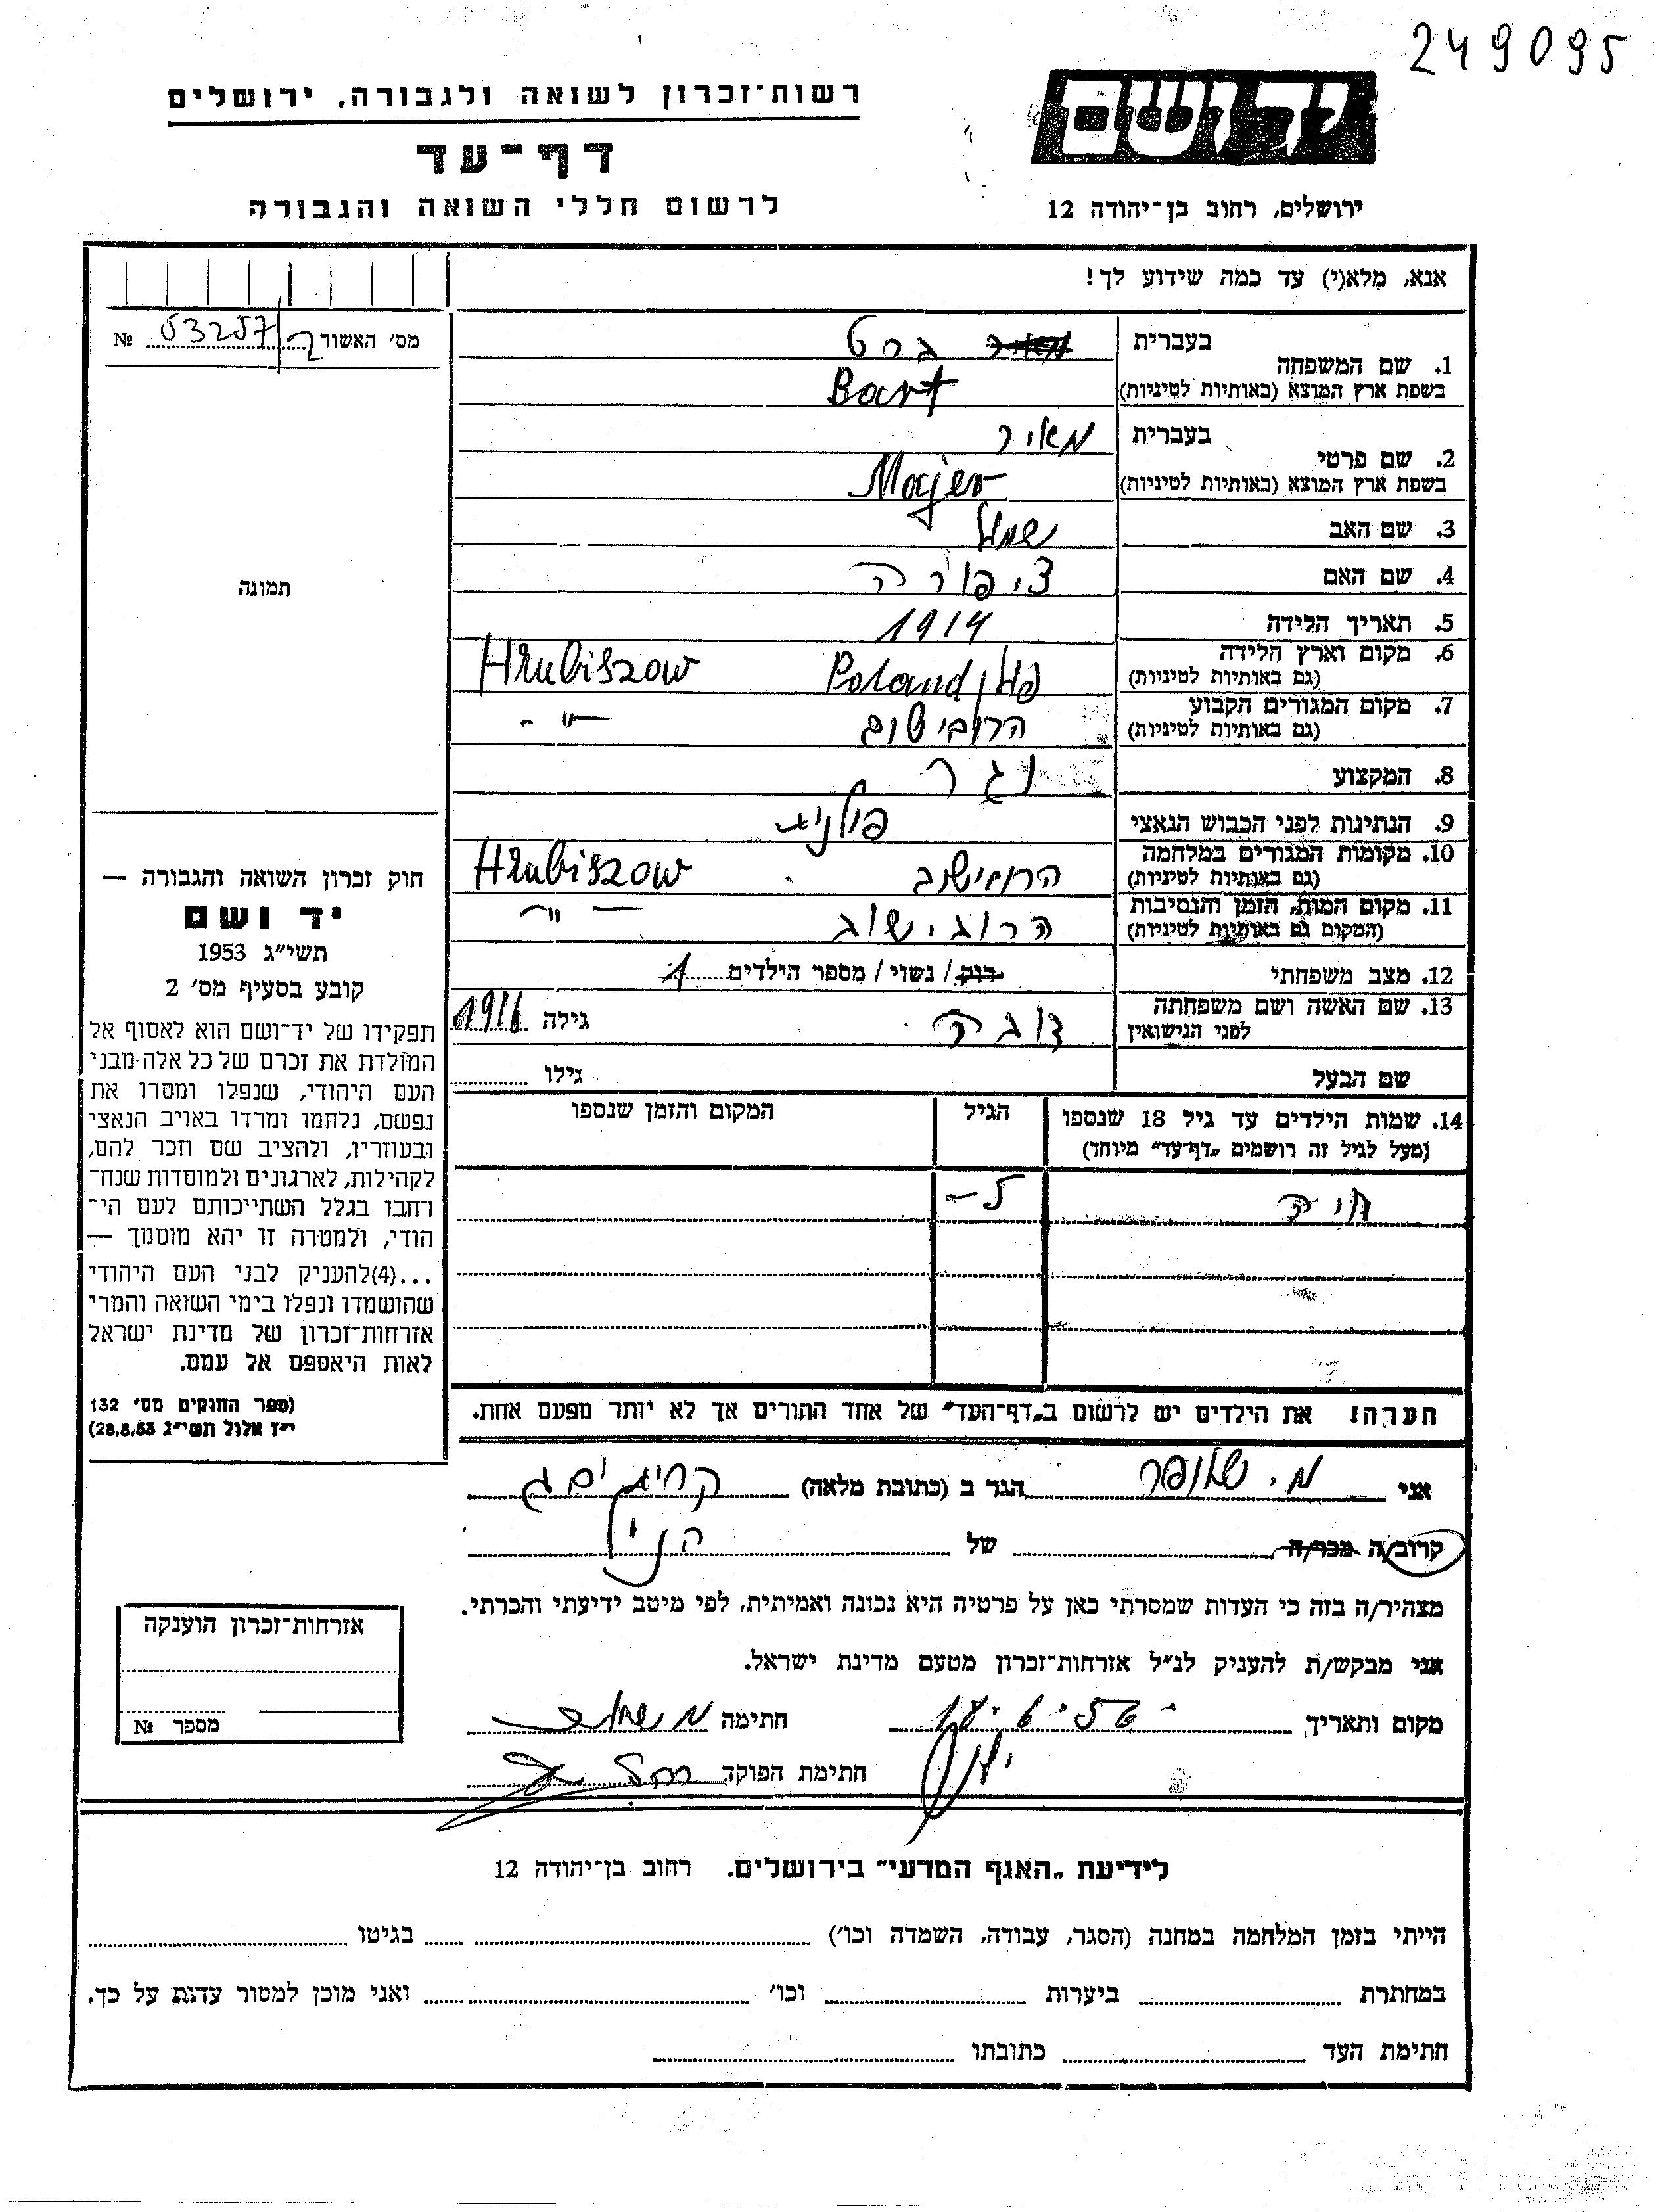 249095
יד ושם
ירושלים, רחוב בן־יהודה 12
רשות־זכרון לשואה ולגבורה, ירושלים
דף־עד
לרשום חללי השואה והגבורה
אנא, מלא(י) עד כמה שידוע לך!
מס' האשור 53257 №
תמונה
בעברית ברט
1. שם המשפחה
בשפת ארץ המוצא (באותיות לטיניות) Bart
בעברית מאיר
2. שם פרטי
בשפת ארץ המוצא (באותיות לטיניות) Majer
3. שם האב
4. שם האם ציפורה
5. תאריך הלידה 1914
6. מקום וארץ הלידה
(גם באותיות לטיניות) פולין Poland Hrubiszow
7. מקום המגורים הקבוע
(גם באותיות לטיניות) הרובישוב -"-
8. המקצוע נגר
9. הנתינות לפני הכבוש הנאצי פולנית
10. מקומות המגורים במלחמה
(גם באותיות לטיניות) הרובישוב Hrubiszow
11. מקום המות, הזמן והנסיבות
(המקום גם באותיות לטיניות) הרובישוב -"-
12. מצב משפחתי רווק / נשוי / מספר הילדים 1
13. שם האשה ושם משפחתה
לפני הנישואין גילה 1916
שם הבעל גילו
14. שמות הילדים עד גיל 18 שנספו הגיל המקום והזמן שנספו
(מעל לגיל זה רושמים „דף־עד" מיוחד)
חיה 5-
הערה! את הילדים יש לרשום ב„דף־העד" של אחד ההורים אך לא יותר מפעם אחת.
חוק זכרון השואה והגבורה —
יד ושם
תשי"ג 1953
קובע בסעיף מס' 2
תפקידו של יד־ושם הוא לאסוף אל
המולדת את זכרם של כל אלה מבני
העם היהודי, שנפלו ומסרו את
נפשם, נלחמו ומרדו באויב הנאצי
ובעוזריו, ולהציב שם וזכר להם,
לקהילות, לארגונים ולמוסדות שנח־
רבו בגלל השתייכותם לעם הי־
הודי, ולמטרה זו יהא מוסמך —
...(4)להעניק לבני העם היהודי
שהושמדו ונפלו בימי השואה והמרי
אזרחות־זכרון של מדינת ישראל
לאות היאספם אל עמם.
(ספר החוקים מס' 132
י"ז אלול תשי"ג 28.8.53)
אני הגר ב (כתובת מלאה) קרית ים ג
קרוב/ה מכר/ה של הנ"ל
מצהיר/ה בזה כי העדות שמסרתי כאן על פרטיה היא נכונה ואמיתית, לפי מיטב ידיעתי והכרתי.
אני מבקש/ת להעניק לנ"ל אזרחות־זכרון מטעם מדינת ישראל.
מקום ותאריך חתימה
חתימת הפוקד
אזרחות־זכרון הוענקה
מספר №
לידיעת „האגף המדעי" בירושלים. רחוב בן־יהודה 12
הייתי בזמן המלחמה במחנה (הסגר, עבודה, השמדה וכו') בגיטו
במחתרת ביערות וכו' ואני מוכן למסור עדות על כך.
חתימת העד כתובתו